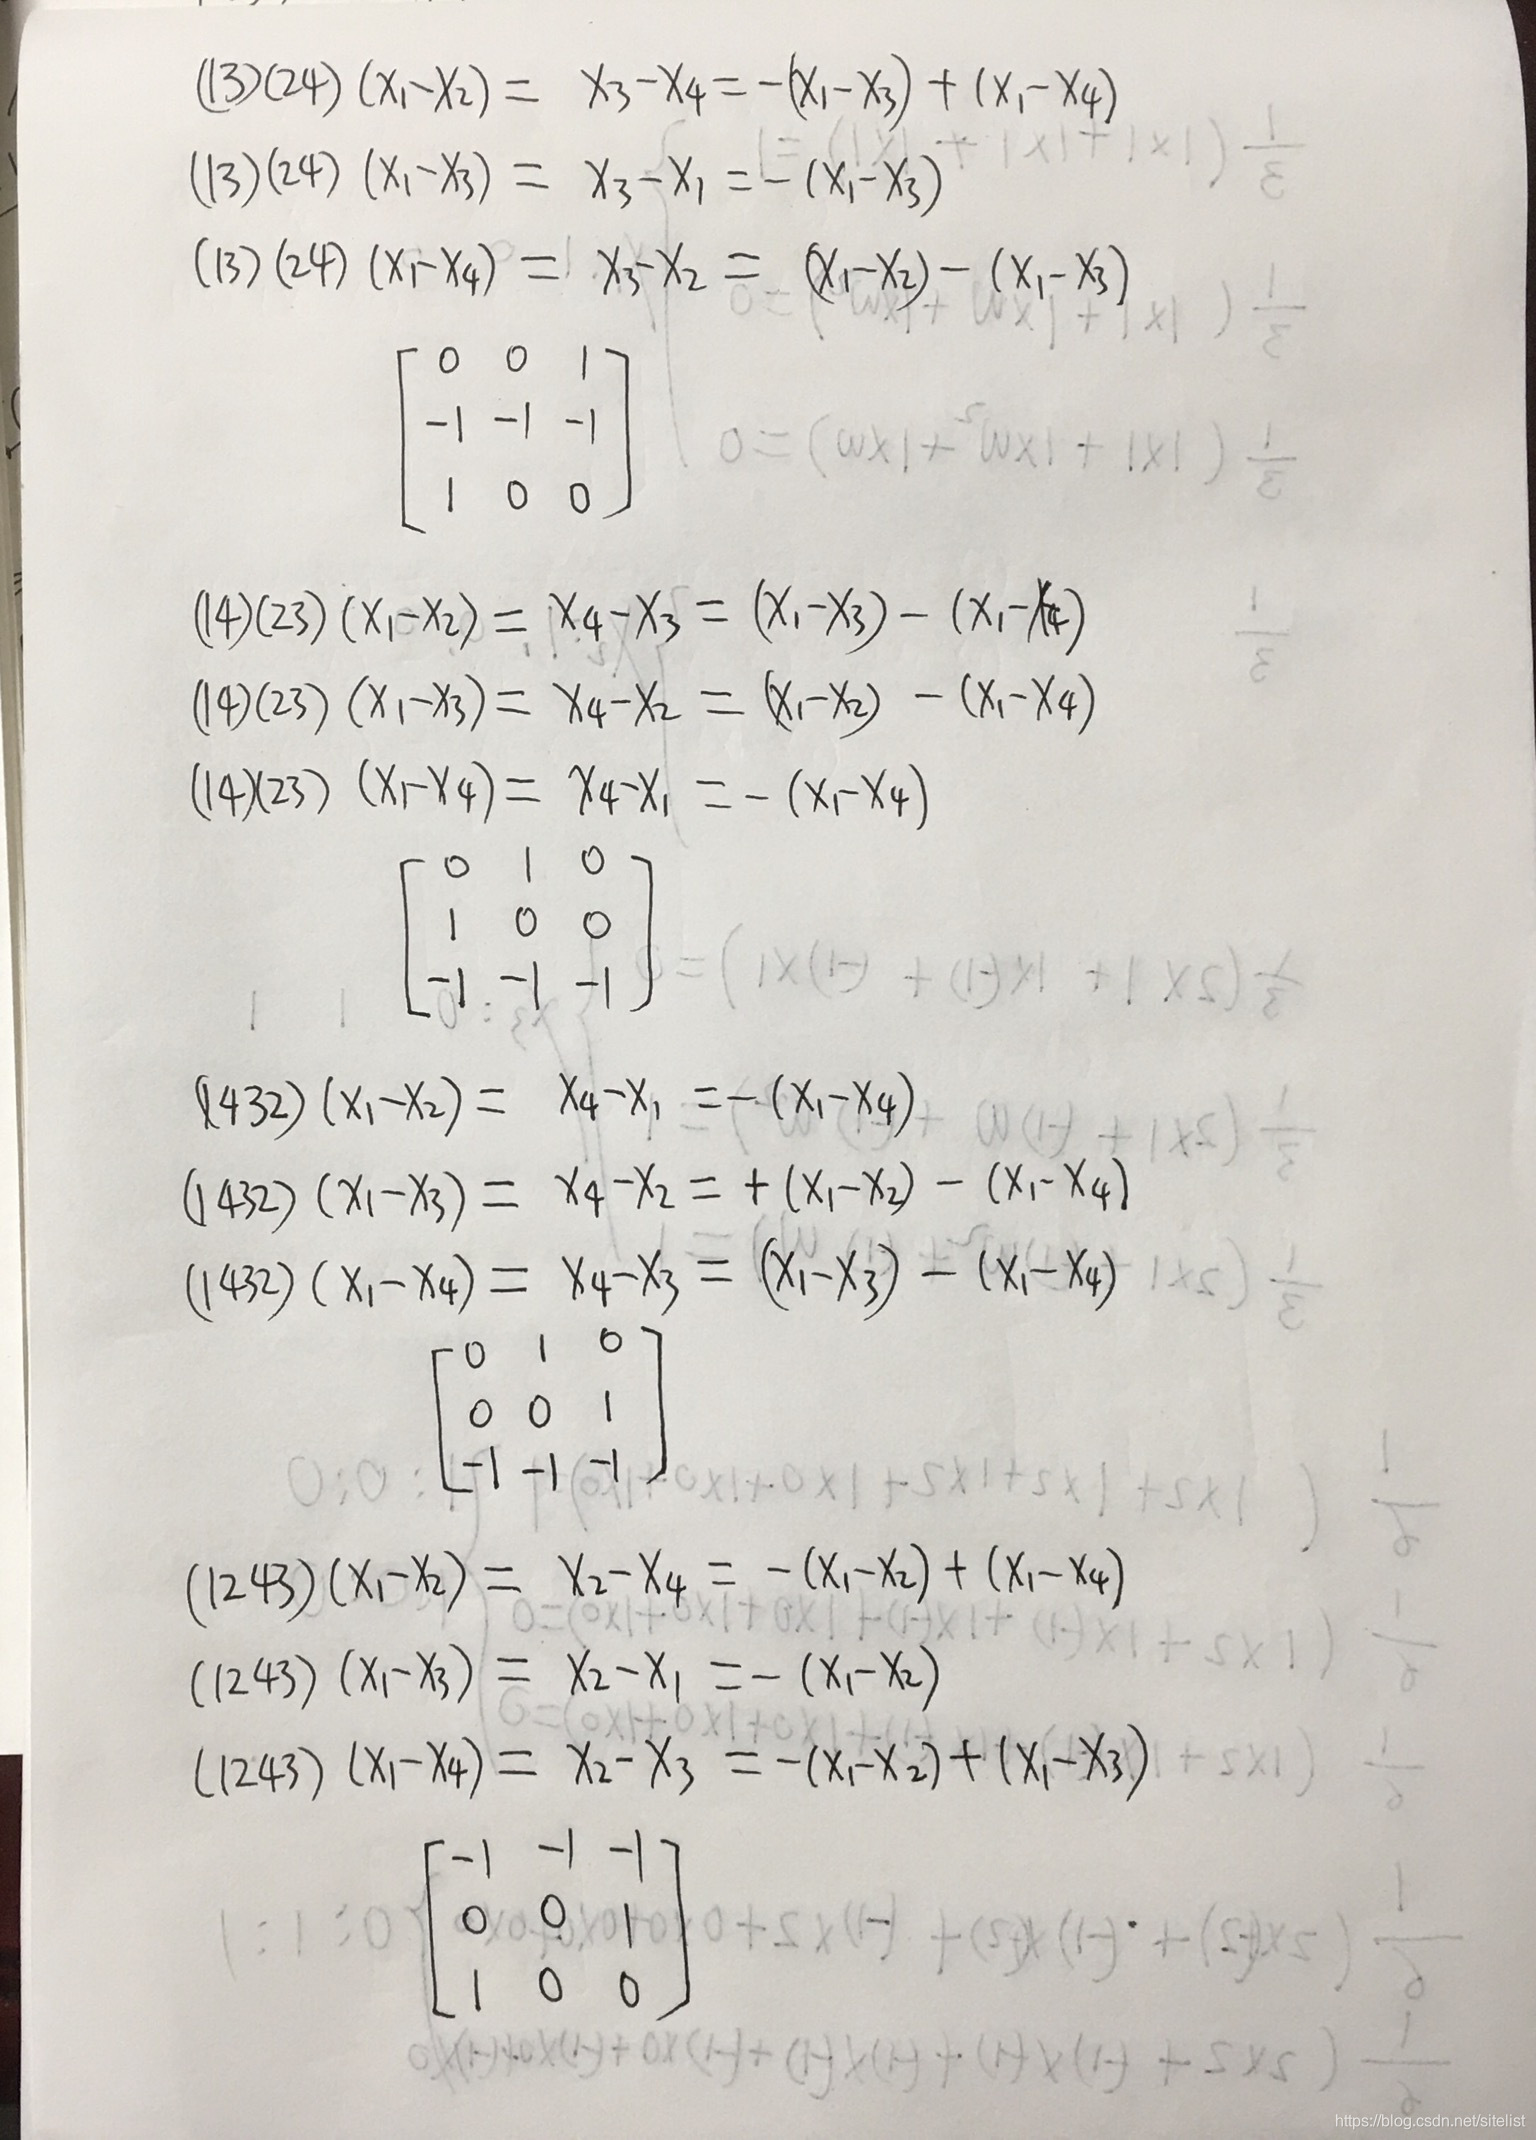 (13)(24)(x₁-x₂) = x₃-x₄ = -(x₁-x₃) + (x₁-x₄)
(13)(24)(x₁-x₃) = x₃-x₁ = -(x₁-x₃)
(13)(24)(x₁-x₄) = x₃-x₂ = (x₁-x₂) - (x₁-x₃)
0 0 1
-1 -1 -1
1 0 0
(14)(23)(x₁-x₂) = x₄-x₃ = (x₁-x₃) - (x₁-x₄)
(14)(23)(x₁-x₃) = x₄-x₂ = (x₁-x₂) - (x₁-x₄)
(14)(23)(x₁-x₄) = x₄-x₁ = -(x₁-x₄)
0 1 0
1 0 0
-1 -1 -1
(1432)(x₁-x₂) = x₄-x₁ = -(x₁-x₄)
(1432)(x₁-x₃) = x₄-x₂ = +(x₁-x₂) - (x₁-x₄)
(1432)(x₁-x₄) = x₄-x₃ = (x₁-x₃) - (x₁-x₄)
0 1 0
0 0 1
-1 -1 -1
(1243)(x₁-x₂) = x₂-x₄ = -(x₁-x₂) + (x₁-x₄)
(1243)(x₁-x₃) = x₂-x₁ = -(x₁-x₂)
(1243)(x₁-x₄) = x₂-x₃ = -(x₁-x₂) + (x₁-x₃)
-1 -1 -1
0 0 1
1 0 0
https://blog.csdn.net/sitelist